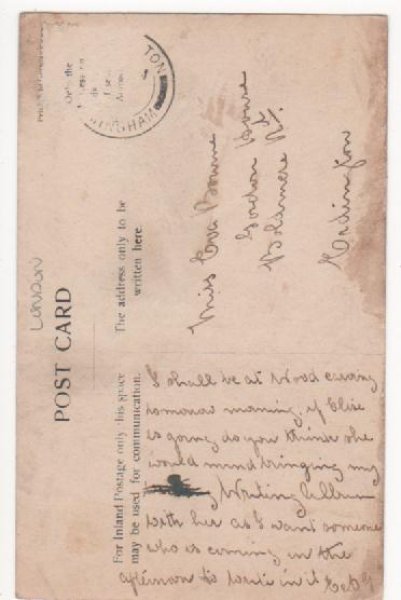 LONDON
POST CARD
For Inland Postage only this space
may be used for communication.
The address only to be
written here.
TON
INGHAM
Miss Eva Bourne
Gordon House
Boldmere Rd.
Erdington
I shall be at Wood carving
tomorrow morning. if Elsie
is going do you think she
would mind bringing my
Writing Album
with her as I want someone
who is coming in the
afternoon to write in it